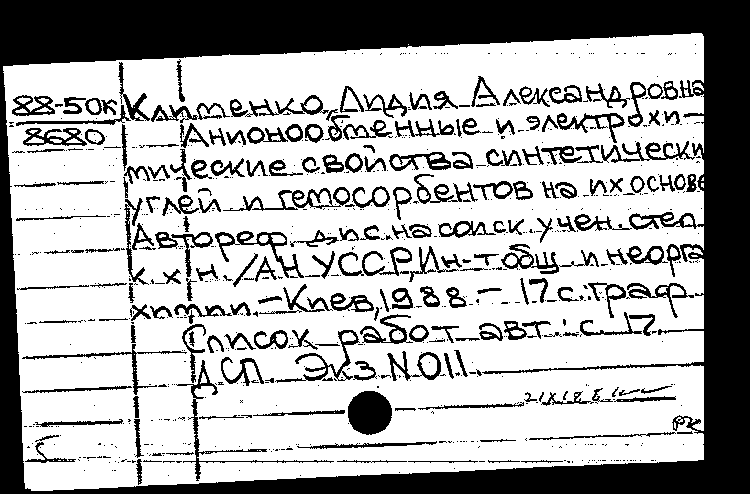 88-50к Клименко, Лидия Александровна
8680 Анионообменные и электрохи-
мические свойства синтетически
углей и гемосорбентов на их основе
Автореф. дис. на соиск. учен. степ.
к. х. н. /АН УССР, Ин-т общ. и неорга
химии. – Киев, 1988. – 17 с.: граф.
Список работ авт.: с. 17.
ДСП. Экз N011.